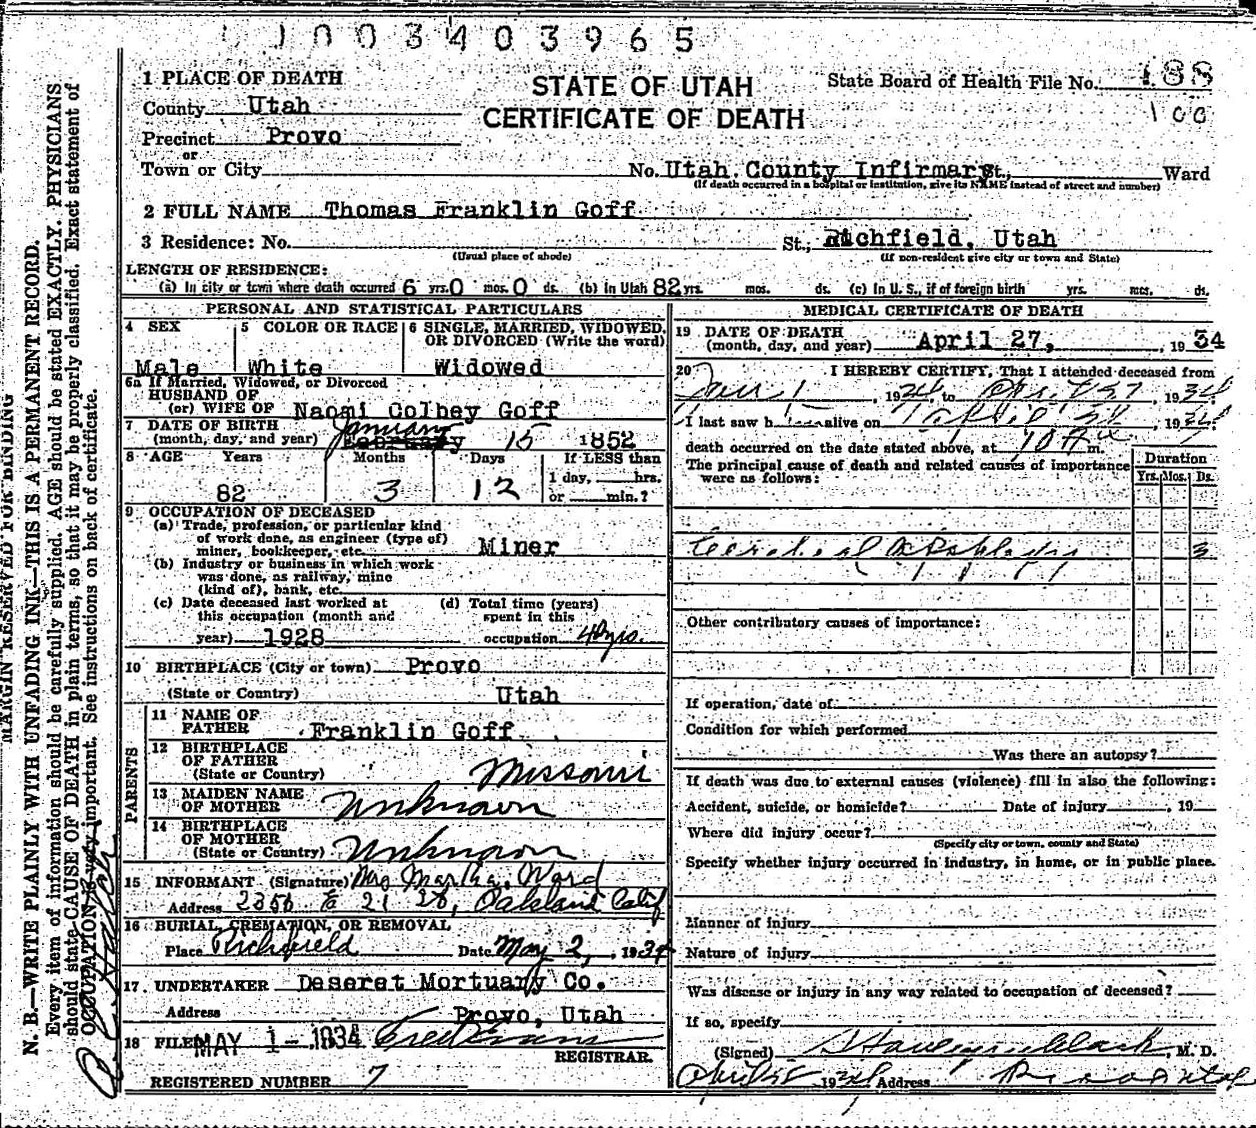 003403965
1 PLACE OF DEATH
STATE OF UTAH
CERTIFICATE OF DEATH
State Board of Health File No. 188
100
County Utah
Precinct Provo
or
Town or City No. Utah County Infirmary St., Ward
(If death occurred in a hospital or institution, give its NAME instead of street and number)
2 FULL NAME Thomas Franklin Goff
3 Residence: No. St., Richfield, Utah
(Usual place of abode) (If non-resident give city or town and State)
LENGTH OF RESIDENCE:
(a) In city or town where death occurred 6 yrs. 0 mos. 0 ds. (b) in Utah 82 yrs. mos. ds. (c) in U. S., if of foreign birth yrs. mos. ds.
PERSONAL AND STATISTICAL PARTICULARS
4 SEX
Male
5 COLOR OR RACE
White
6 SINGLE, MARRIED, WIDOWED,
OR DIVORCED (Write the word)
Widowed
6a If Married, Widowed, or Divorced
HUSBAND OF
(or) WIFE OF Naomi Colbey Goff
7 DATE OF BIRTH
(month, day, and year) January February 15 1852
8 AGE Years Months Days If LESS than
1 day, hrs.
82 3 12 or min.?
9 OCCUPATION OF DECEASED
(a) Trade, profession, or particular kind
of work done, as engineer (type of)
miner, bookkeeper, etc. Miner
(b) Industry or business in which work
was done, as railway, mine
(kind of), bank, etc.
(c) Date deceased last worked at
this occupation (month and
year) 1928
(d) Total time (years)
spent in this
occupation 40 yrs.
10 BIRTHPLACE (City or town) Provo
(State or Country) Utah
PARENTS
11 NAME OF
FATHER Franklin Goff
12 BIRTHPLACE
OF FATHER
(State or Country) Missouri
13 MAIDEN NAME
OF MOTHER Unknown
14 BIRTHPLACE
OF MOTHER
(State or Country) Unknown
15 INFORMANT (Signature) Mrs Martha Ward
Address 2356 E 21 St, Oakland Calif
16 BURIAL, CREMATION, OR REMOVAL
Place Richfield Date May 2, 1934
17. UNDERTAKER Deseret Mortuary Co.
Address Provo, Utah
18 FILED MAY 1 - 1934 Fred Evans
REGISTRAR.
REGISTERED NUMBER 7
MEDICAL CERTIFICATE OF DEATH
19 DATE OF DEATH
(month, day, and year) April 27, 1934
20 I HEREBY CERTIFY, That I attended deceased from
Jan 1, 1934, to Apr. 27, 1934
I last saw him alive on April, 1934
death occurred on the date stated above, at 10 m.
The principal cause of death and related causes of importance
were as follows:
Duration
Yrs. Mos. Ds.
Cerebral Apoplexy 3
Other contributory causes of importance:
If operation, date of
Condition for which performed
Was there an autopsy?
If death was due to external causes (violence) fill in also the following:
Accident, suicide, or homicide? Date of injury, 19
Where did injury occur?
(Specify city or town, county and State)
Specify whether injury occurred in industry, in home, or in public place.
Manner of injury
Nature of injury
Was disease or injury in any way related to occupation of deceased?
If so, specify
(Signed) Clark, M. D.
April 1934 Address Provo Utah
MARGIN RESERVED FOR BINDING
N. B.—WRITE PLAINLY WITH UNFADING INK—THIS IS A PERMANENT RECORD.
Every item of information should be carefully supplied. AGE should be stated EXACTLY. PHYSICIANS
should state CAUSE OF DEATH in plain terms, so that it may be properly classified. Exact statement of
OCCUPATION is very important. See instructions on back of certificate.